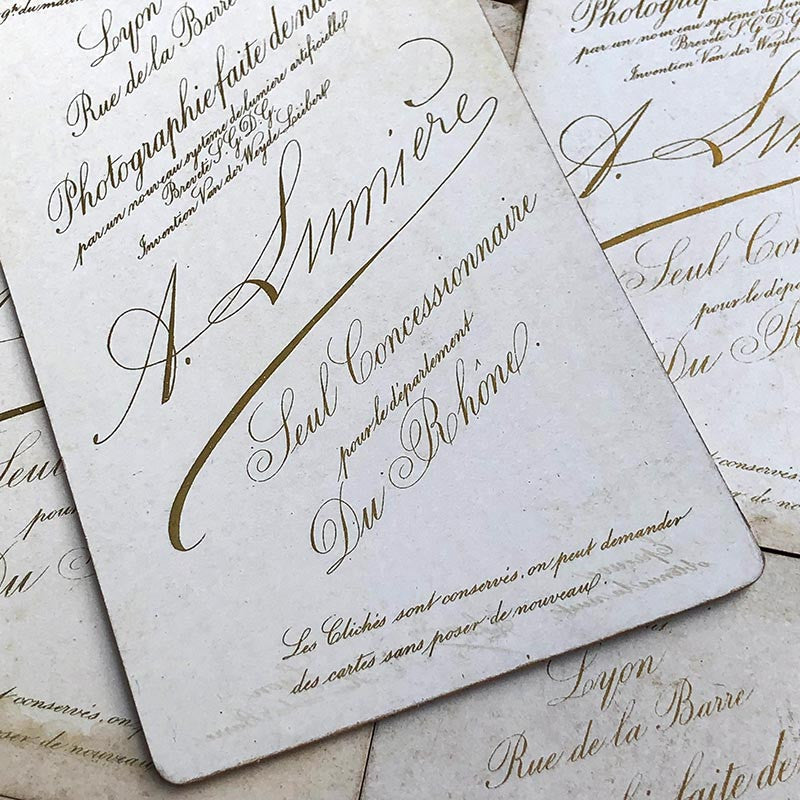 Lyon
Rue de la Barre
Photographie faite de nu
par un nouveau système de lumière artificielle
Breveté S.G.D.G.
Invention Van der Weyde-Liébert
A. Lumière
Seul Concessionnaire
pour le département
Du Rhône.
Les Clichés sont conservés, on peut demander
des cartes sans poser de nouveau.
Photogra
par un nouveau système de lum
Breveté S.G.D.G.
Invention Van der Weyde
A. Lu
Seul Con
pour le dépa
Du R
conservés
de no
Seul
pour
Du
conservés, on
de nouveau
Lyon
Rue de la Barre
faite de